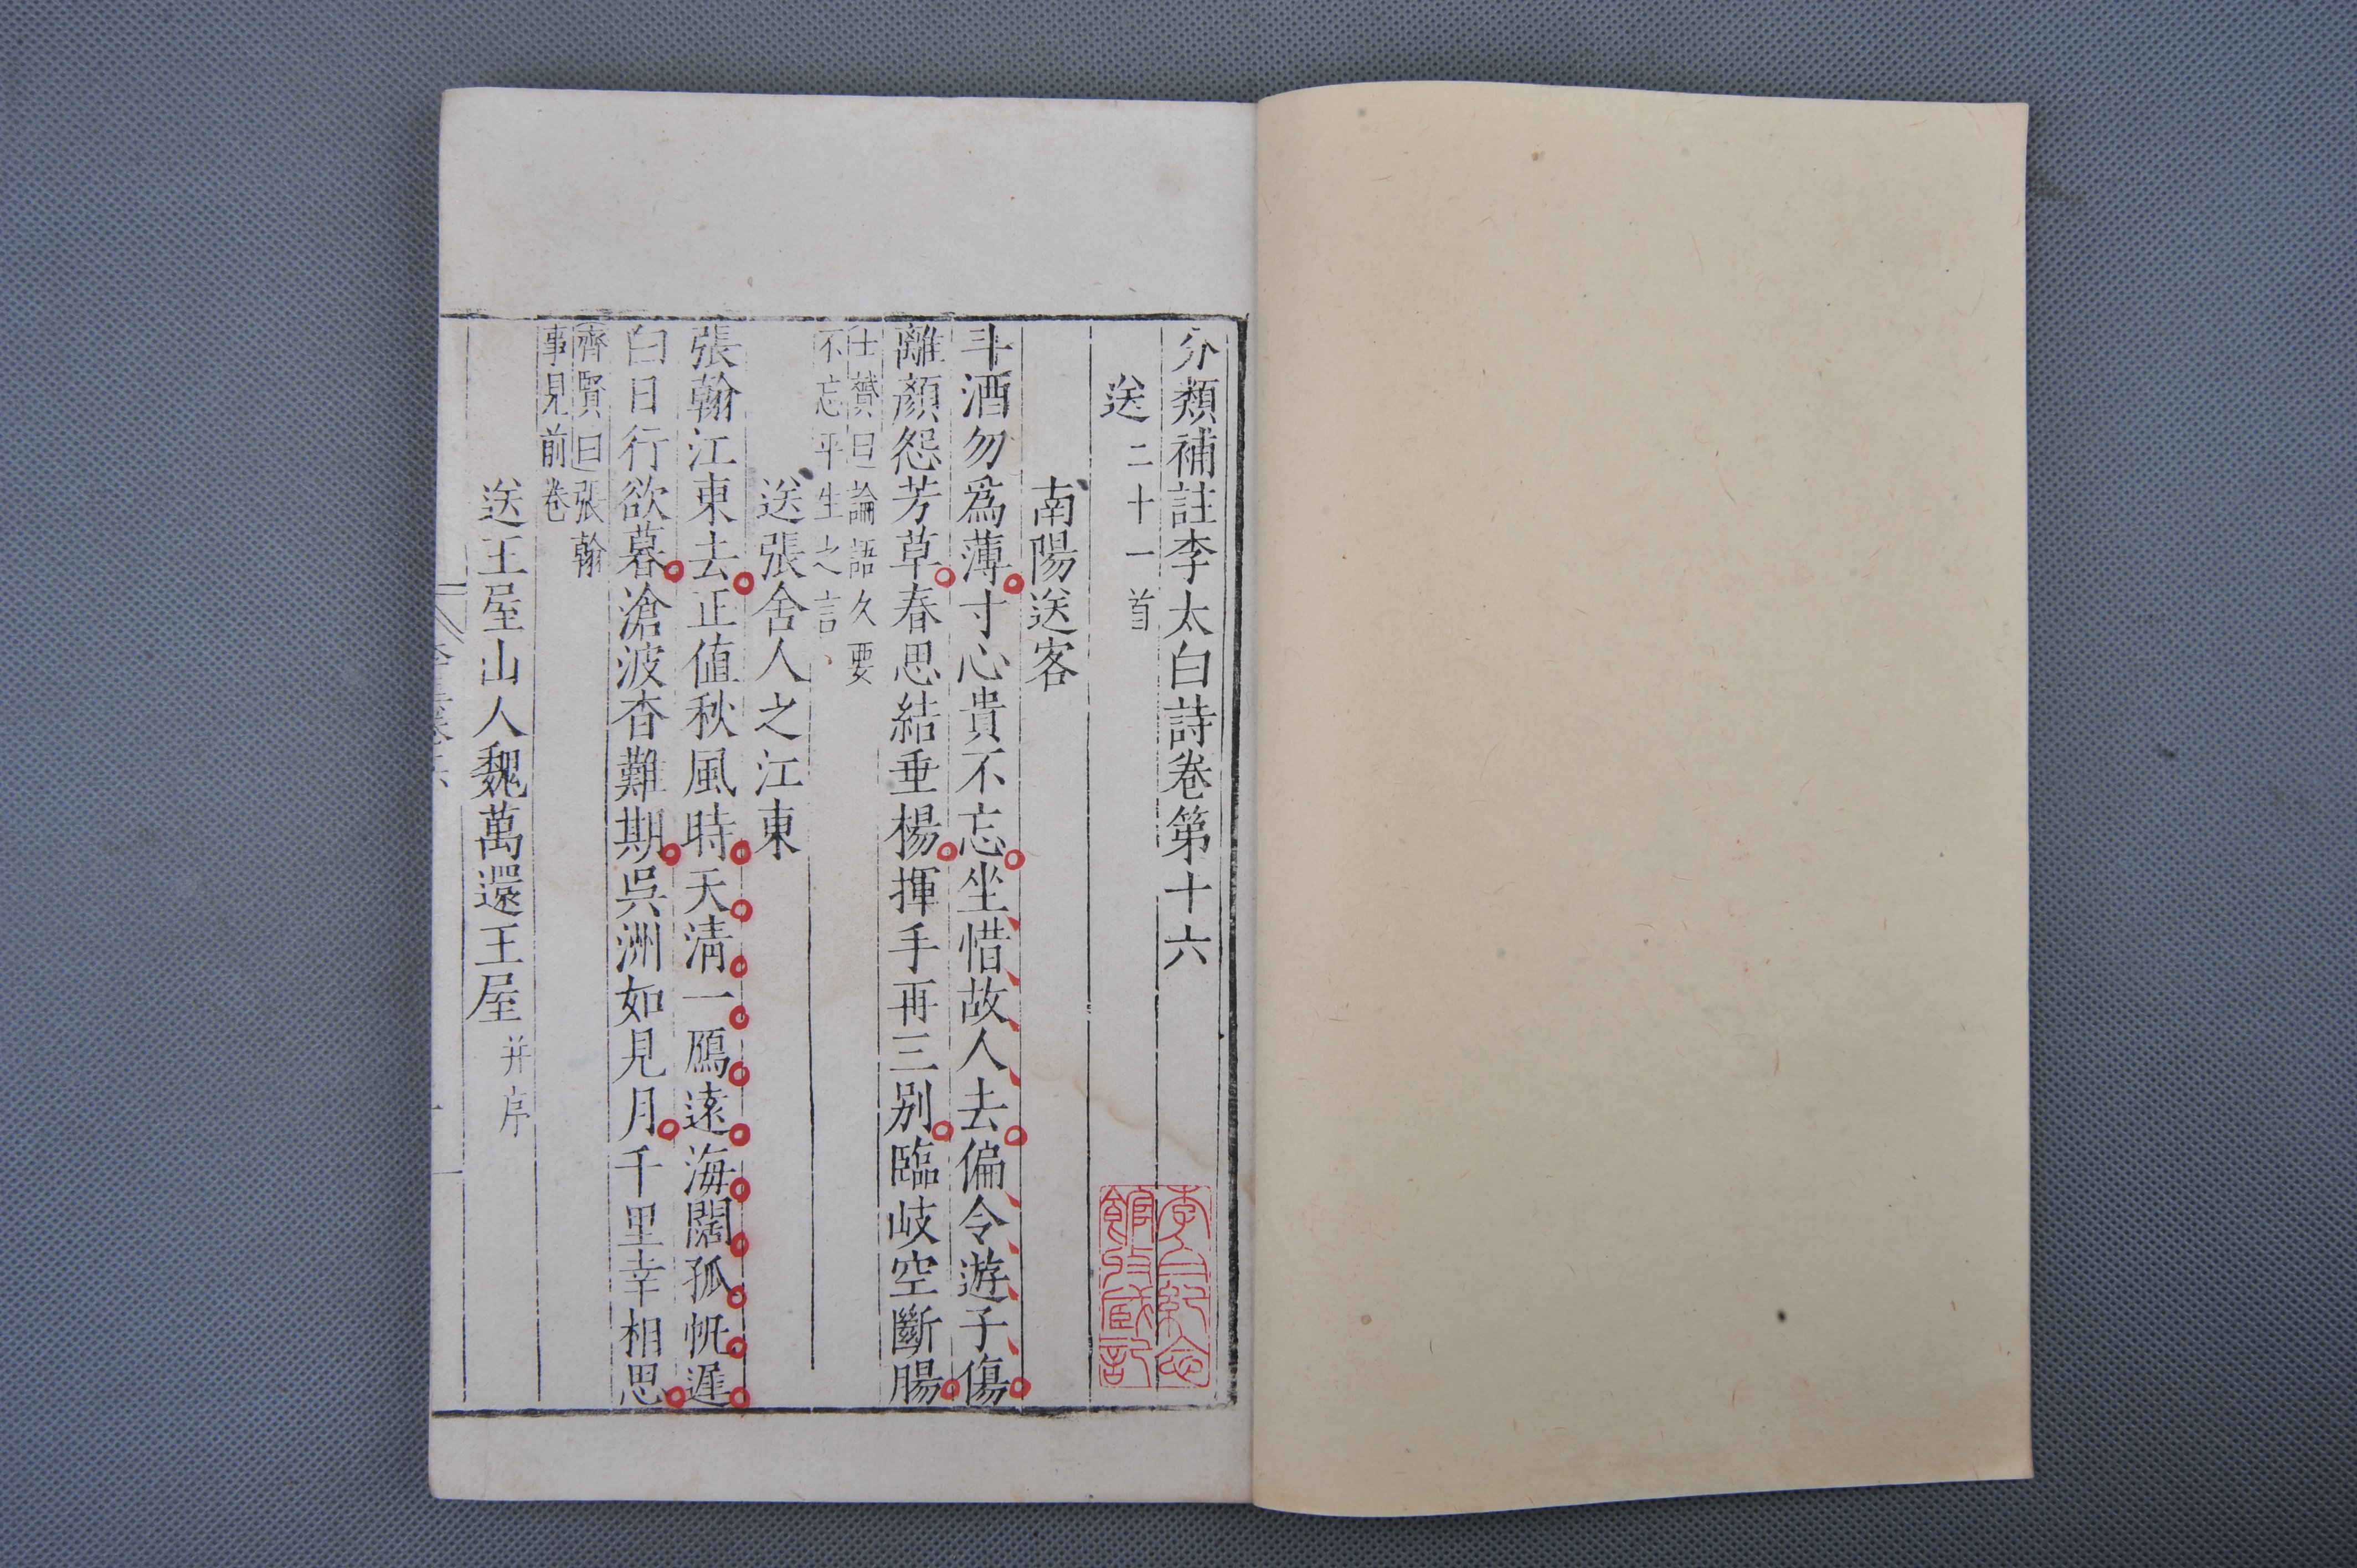 分類補註李太白詩卷第十六
送二十一首
南陽送客
斗酒勿爲薄寸心貴不忘坐惜故人去偏令遊子傷
離顏怨芳草春思結垂楊揮手再三別臨岐空斷腸
士贇曰論語久要
不忘平生之言
送張舍人之江東
張翰江東去正值秋風時天淸一鴈遠海闊孤帆遲
白日行欲暮滄波杳難期吳洲如見月千里幸相思
齊賢曰張翰
事見前卷
送王屋山人魏萬還王屋并序
李白紀念
館收藏記